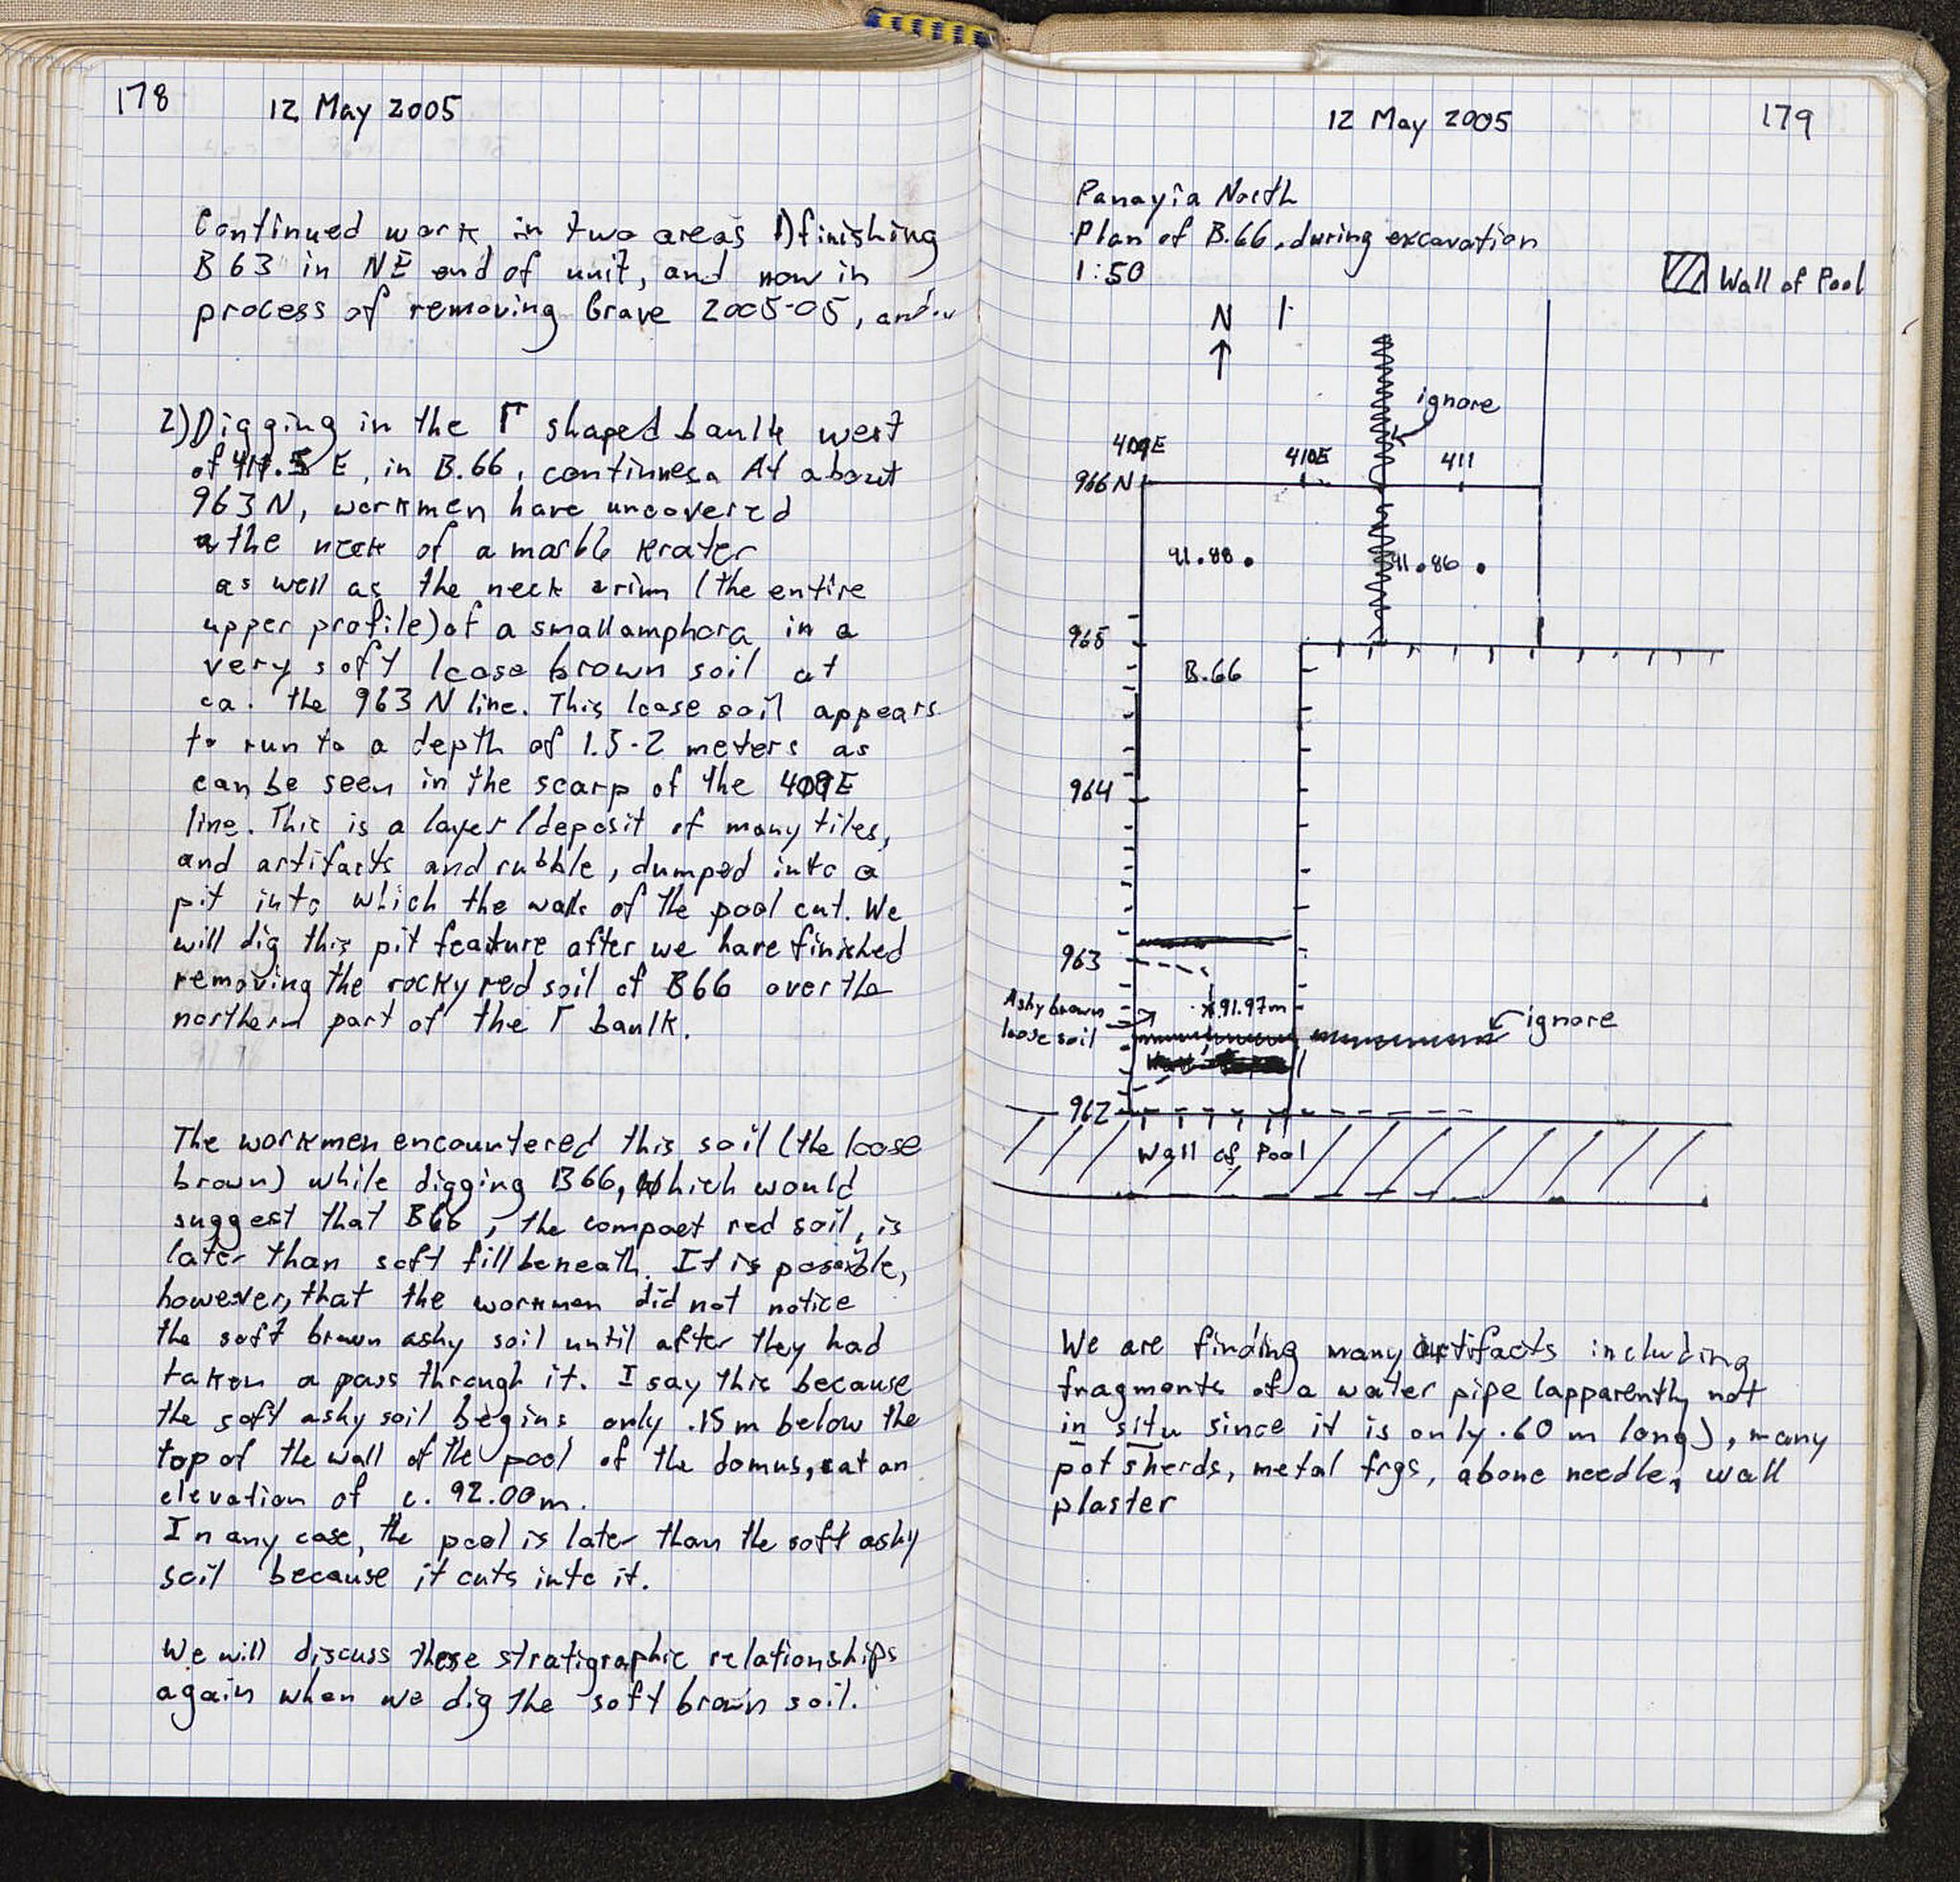 178
12 May 2005
Continued work in two areas 1) finishing
B63 in NE end of unit, and now in
process of removing Grave 2005-05, and..
2) Digging in the Γ shaped baulk west
of 411.5 E, in B.66, continues. At about
963 N, workmen have uncovered
the neck of a marble krater
as well as the neck & rim (the entire
upper profile) of a small amphora in a
very soft loose brown soil at
ca. the 963 N line. This loose soil appears
to run to a depth of 1.5-2 meters as
can be seen in the scarp of the 409E
line. This is a layer/deposit of many tiles,
and artifacts and rubble, dumped into a
pit into which the walls of the pool cut. We
will dig this pit feature after we have finished
removing the rocky red soil of B66 over the
northern part of the Γ baulk.
The workmen encountered this soil (the loose
brown) while digging B66, which would
suggest that B66, the compact red soil, is
later than soft fill beneath. It is possible,
however, that the workmen did not notice
the soft brown ashy soil until after they had
taken a pass through it. I say this because
the soft ashy soil begins only .15 m below the
top of the wall of the pool of the domus, at an
elevation of c. 92.00 m.
In any case, the pool is later than the soft ashy
soil because it cuts into it.
We will discuss these stratigraphic relationships
again when we dig the soft brown soil.
12 May 2005
179
Panayia North
Plan of B.66, during excavation
1:50
Wall of Pool
N
ignore
409E
410E
411
966 N
91.88
91.86
965
B.66
964
963
Ashy brown
loose soil
91.97m
ignore
962
Wall of Pool
We are finding many artifacts including
fragments of a water pipe (apparently not
in situ since it is only .60 m long), many
pot sherds, metal frgs, a bone needle, wall
plaster